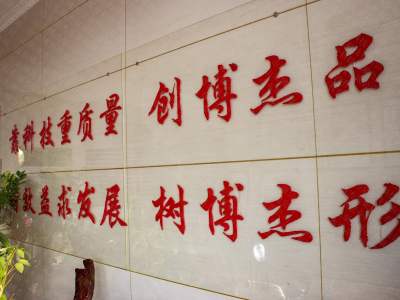 靠科技重质量 创博杰品
效益求发展 树博杰形